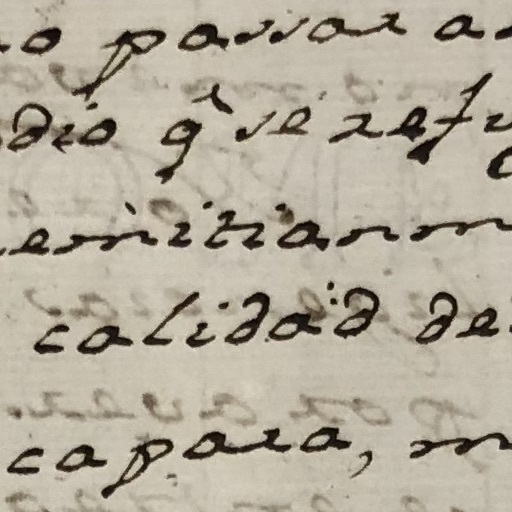 o passar a
dio q̃ se ref
emitian m
calidad de
capara, m